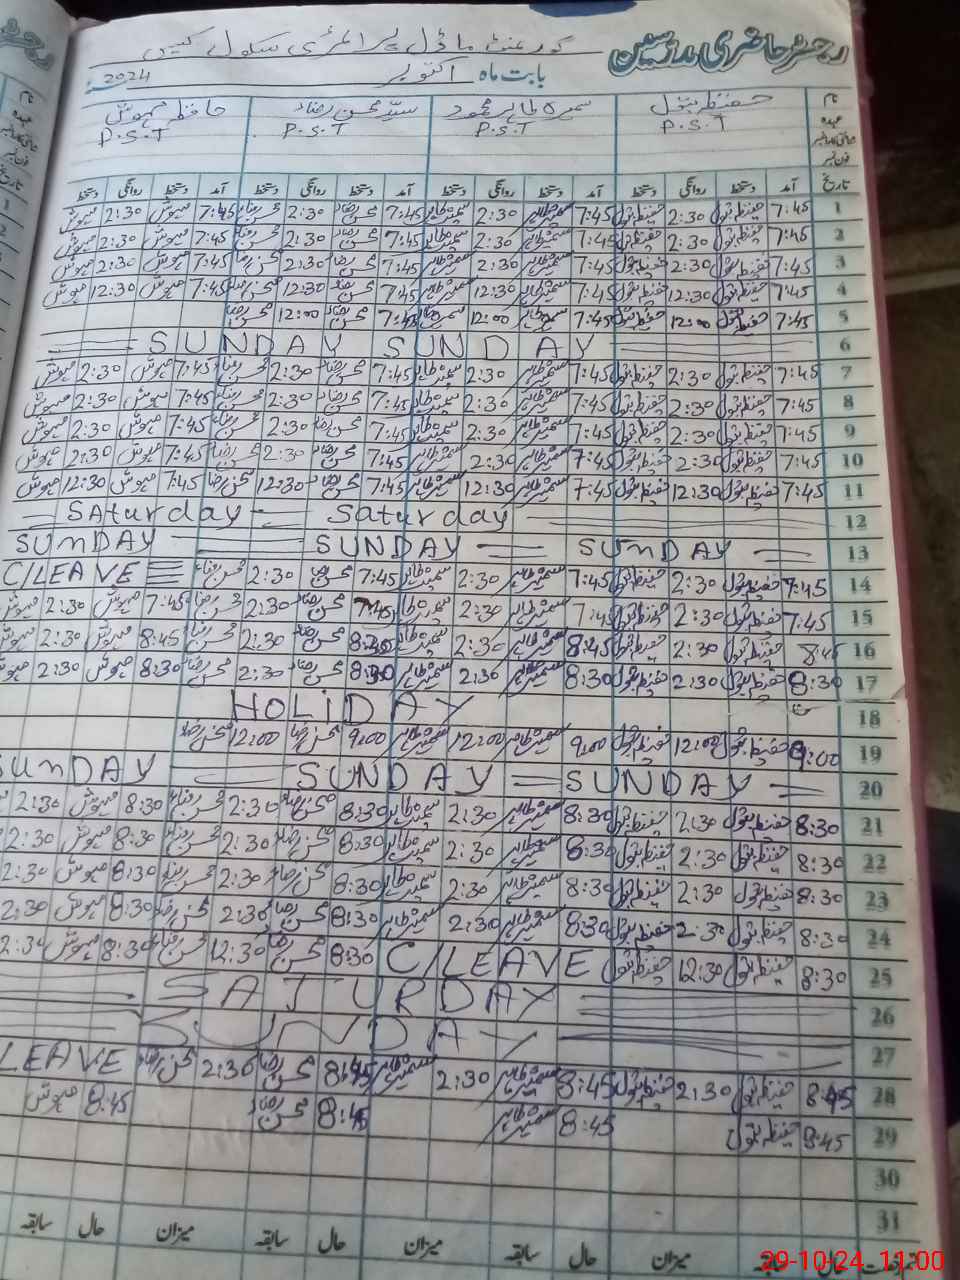 رجسٹر حاضری مدرسین گورنمنٹ ماڈل پرائمری سکول
بابت ماہ اکتوبر 2024
نام حفیظ بتول سمیرہ طاہر محمود سید محسن رضا حافظ مہوش
عہدہ P.S.T P.S.T P.S.T P.S.T
فون نمبر
تاریخ آمد دستخط روانگی دستخط آمد دستخط روانگی دستخط آمد دستخط روانگی دستخط آمد دستخط روانگی دستخط
1 7:45 حفیظ بتول 2:30 حفیظ بتول 7:45 سمیرہ طاہر 2:30 سمیرہ طاہر 7:45 محسن رضا 2:30 محسن رضا 7:45 مہوش 2:30 مہوش
2 7:45 حفیظ بتول 2:30 حفیظ بتول 7:45 سمیرہ طاہر 2:30 سمیرہ طاہر 7:45 محسن رضا 2:30 محسن رضا 7:45 مہوش 2:30 مہوش
3 7:45 حفیظ بتول 2:30 حفیظ بتول 7:45 سمیرہ طاہر 2:30 سمیرہ طاہر 7:45 محسن رضا 2:30 محسن رضا 7:45 مہوش 2:30 مہوش
4 7:45 حفیظ بتول 12:30 حفیظ بتول 7:45 سمیرہ طاہر 12:30 سمیرہ طاہر 7:45 محسن رضا 12:30 محسن رضا 7:45 مہوش 12:30 مہوش
5 7:45 حفیظ بتول 12:00 حفیظ بتول 7:45 سمیرہ طاہر 12:00 سمیرہ طاہر 7:45 محسن رضا 12:00 محسن رضا
6 SUNDAY SUNDAY
7 7:45 حفیظ بتول 2:30 حفیظ بتول 7:45 سمیرہ طاہر 2:30 سمیرہ طاہر 7:45 محسن رضا 2:30 محسن رضا 7:45 مہوش 2:30 مہوش
8 7:45 حفیظ بتول 2:30 حفیظ بتول 7:45 سمیرہ طاہر 2:30 سمیرہ طاہر 7:45 محسن رضا 2:30 محسن رضا 7:45 مہوش 2:30 مہوش
9 7:45 حفیظ بتول 2:30 حفیظ بتول 7:45 سمیرہ طاہر 2:30 سمیرہ طاہر 7:45 محسن رضا 2:30 محسن رضا 7:45 مہوش 2:30 مہوش
10 7:45 حفیظ بتول 2:30 حفیظ بتول 7:45 سمیرہ طاہر 2:30 سمیرہ طاہر 7:45 محسن رضا 2:30 محسن رضا 7:45 مہوش 2:30 مہوش
11 7:45 حفیظ بتول 12:30 حفیظ بتول 7:45 سمیرہ طاہر 12:30 سمیرہ طاہر 7:45 محسن رضا 12:30 محسن رضا 7:45 مہوش 12:30 مہوش
12 Saturday SAturday
13 SUNDAY SUNDAY SUNDAY
14 7:45 حفیظ بتول 2:30 حفیظ بتول 7:45 سمیرہ طاہر 2:30 سمیرہ طاہر 7:45 محسن رضا 2:30 محسن رضا C/LEAVE
15 7:45 حفیظ بتول 2:30 حفیظ بتول 7:45 سمیرہ طاہر 2:30 سمیرہ طاہر 7:45 محسن رضا 2:30 محسن رضا 7:45 مہوش 2:30 مہوش
16 8:45 حفیظ بتول 2:30 حفیظ بتول 8:45 سمیرہ طاہر 2:30 سمیرہ طاہر محسن رضا 2:30 محسن رضا 8:45 مہوش 2:30 مہوش
17 8:30 حفیظ بتول 2:30 حفیظ بتول 8:30 سمیرہ طاہر 2:30 سمیرہ طاہر 8:30 محسن رضا 2:30 محسن رضا 8:30 مہوش 2:30 مہوش
18 HOLiDAY
19 9:00 حفیظ بتول 12:00 حفیظ بتول 9:00 سمیرہ طاہر 12:00 سمیرہ طاہر 9:00 محسن رضا 12:00 محسن رضا
20 SUNDAY SUNDAY SUNDAY
21 8:30 حفیظ بتول 2:30 حفیظ بتول 8:30 سمیرہ طاہر 2:30 سمیرہ طاہر 8:30 محسن رضا 2:30 محسن رضا 8:30 مہوش 2:30
22 8:30 حفیظ بتول 2:30 حفیظ بتول 8:30 سمیرہ طاہر 2:30 سمیرہ طاہر 8:30 محسن رضا 2:30 محسن رضا 8:30 مہوش 2:30
23 8:30 حفیظ بتول 2:30 حفیظ بتول 8:30 سمیرہ طاہر 2:30 سمیرہ طاہر 8:30 محسن رضا 2:30 محسن رضا 8:30 مہوش 2:30
24 8:30 حفیظ بتول 2:30 حفیظ بتول 8:30 سمیرہ طاہر 2:30 سمیرہ طاہر 8:30 محسن رضا 2:30 محسن رضا 8:30 مہوش 2:30
25 8:30 حفیظ بتول 12:30 حفیظ بتول C/LEAVE 8:30 محسن رضا 12:30 محسن رضا 8:30 مہوش
26 SATURDAY
27 SUNDAY
28 8:45 حفیظ بتول 2:30 حفیظ بتول 8:45 سمیرہ طاہر 2:30 سمیرہ طاہر 8:45 محسن رضا 2:30 محسن رضا LEAVE
29 8:45 حفیظ بتول 8:45 سمیرہ طاہر 8:45 محسن رضا 8:45 مہوش
30
31
حال سابقہ میزان حال سابقہ میزان حال سابقہ میزان حال سابقہ
29-10-24 11:00